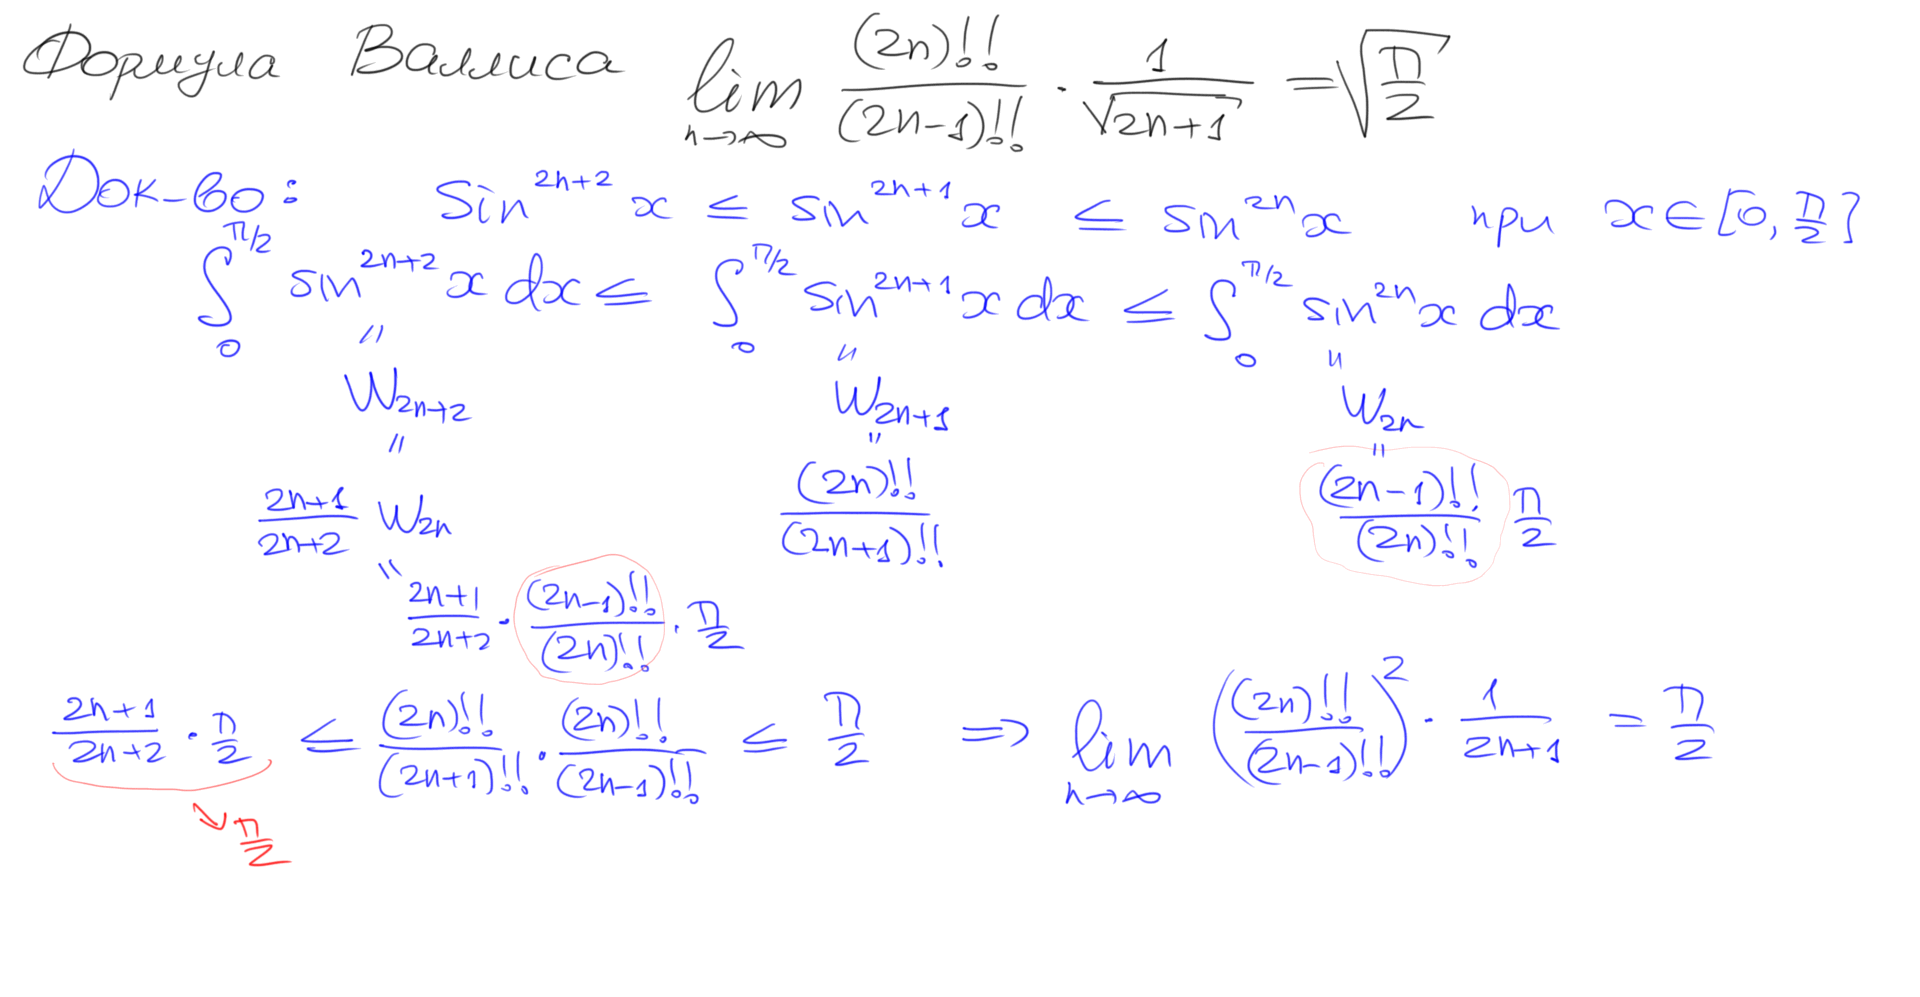 Формула Валлиса $\lim\limits_{n\to\infty} \frac{(2n)!!}{(2n-1)!!} \cdot \frac{1}{\sqrt{2n+1}} = \sqrt{\frac{\pi}{2}}$
Док-во: $\sin^{2n+2} x \leq \sin^{2n+1} x \leq \sin^{2n} x$ при $x \in [0, \frac{\pi}{2}]$
$\int_0^{\pi/2} \sin^{2n+2} x \, dx \leq \int_0^{\pi/2} \sin^{2n+1} x \, dx \leq \int_0^{\pi/2} \sin^{2n} x \, dx$
= = =
$W_{2n+2}$ $W_{2n+1}$ $W_{2n}$
= = =
$\frac{2n+1}{2n+2} W_{2n}$ $\frac{(2n)!!}{(2n+1)!!}$ $\frac{(2n-1)!!}{(2n)!!} \frac{\pi}{2}$
=
$\frac{2n+1}{2n+2} \cdot \frac{(2n-1)!!}{(2n)!!} \cdot \frac{\pi}{2}$
$\frac{2n+1}{2n+2} \cdot \frac{\pi}{2} \leq \frac{(2n)!!}{(2n+1)!!} \cdot \frac{(2n)!!}{(2n-1)!!} \leq \frac{\pi}{2} \Rightarrow \lim\limits_{n\to\infty} \left(\frac{(2n)!!}{(2n-1)!!}\right)^2 \cdot \frac{1}{2n+1} = \frac{\pi}{2}$
$\searrow \frac{\pi}{2}$